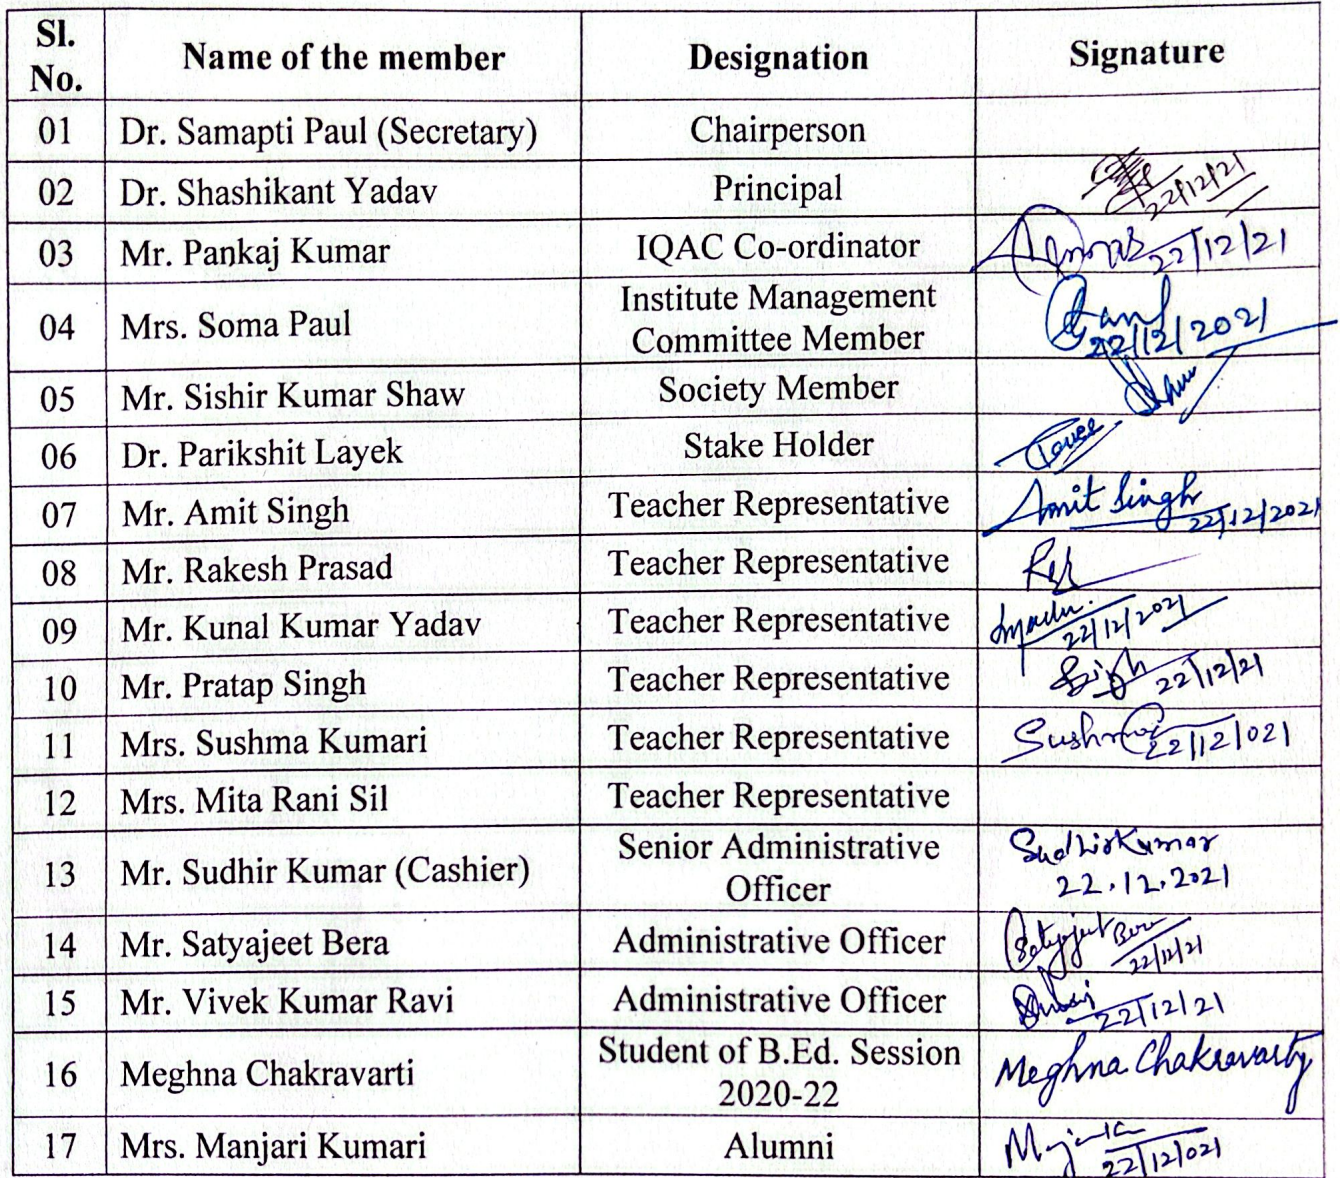 Sl. No. Name of the member Designation Signature
01 Dr. Samapti Paul (Secretary) Chairperson
02 Dr. Shashikant Yadav Principal 22/12/21
03 Mr. Pankaj Kumar IQAC Co-ordinator 22/12/21
04 Mrs. Soma Paul Institute Management Committee Member 22/12/2021
05 Mr. Sishir Kumar Shaw Society Member
06 Dr. Parikshit Layek Stake Holder
07 Mr. Amit Singh Teacher Representative Amit Singh 22/12/2021
08 Mr. Rakesh Prasad Teacher Representative
09 Mr. Kunal Kumar Yadav Teacher Representative 22/12/2021
10 Mr. Pratap Singh Teacher Representative Singh 22/12/21
11 Mrs. Sushma Kumari Teacher Representative Sushma 22/12/021
12 Mrs. Mita Rani Sil Teacher Representative
13 Mr. Sudhir Kumar (Cashier) Senior Administrative Officer Sudhir Kumar 22.12.2021
14 Mr. Satyajeet Bera Administrative Officer Satyajeet Bera 22/12/21
15 Mr. Vivek Kumar Ravi Administrative Officer 22/12/21
16 Meghna Chakravarti Student of B.Ed. Session 2020-22 Meghna Chakravarty
17 Mrs. Manjari Kumari Alumni 22/12/021